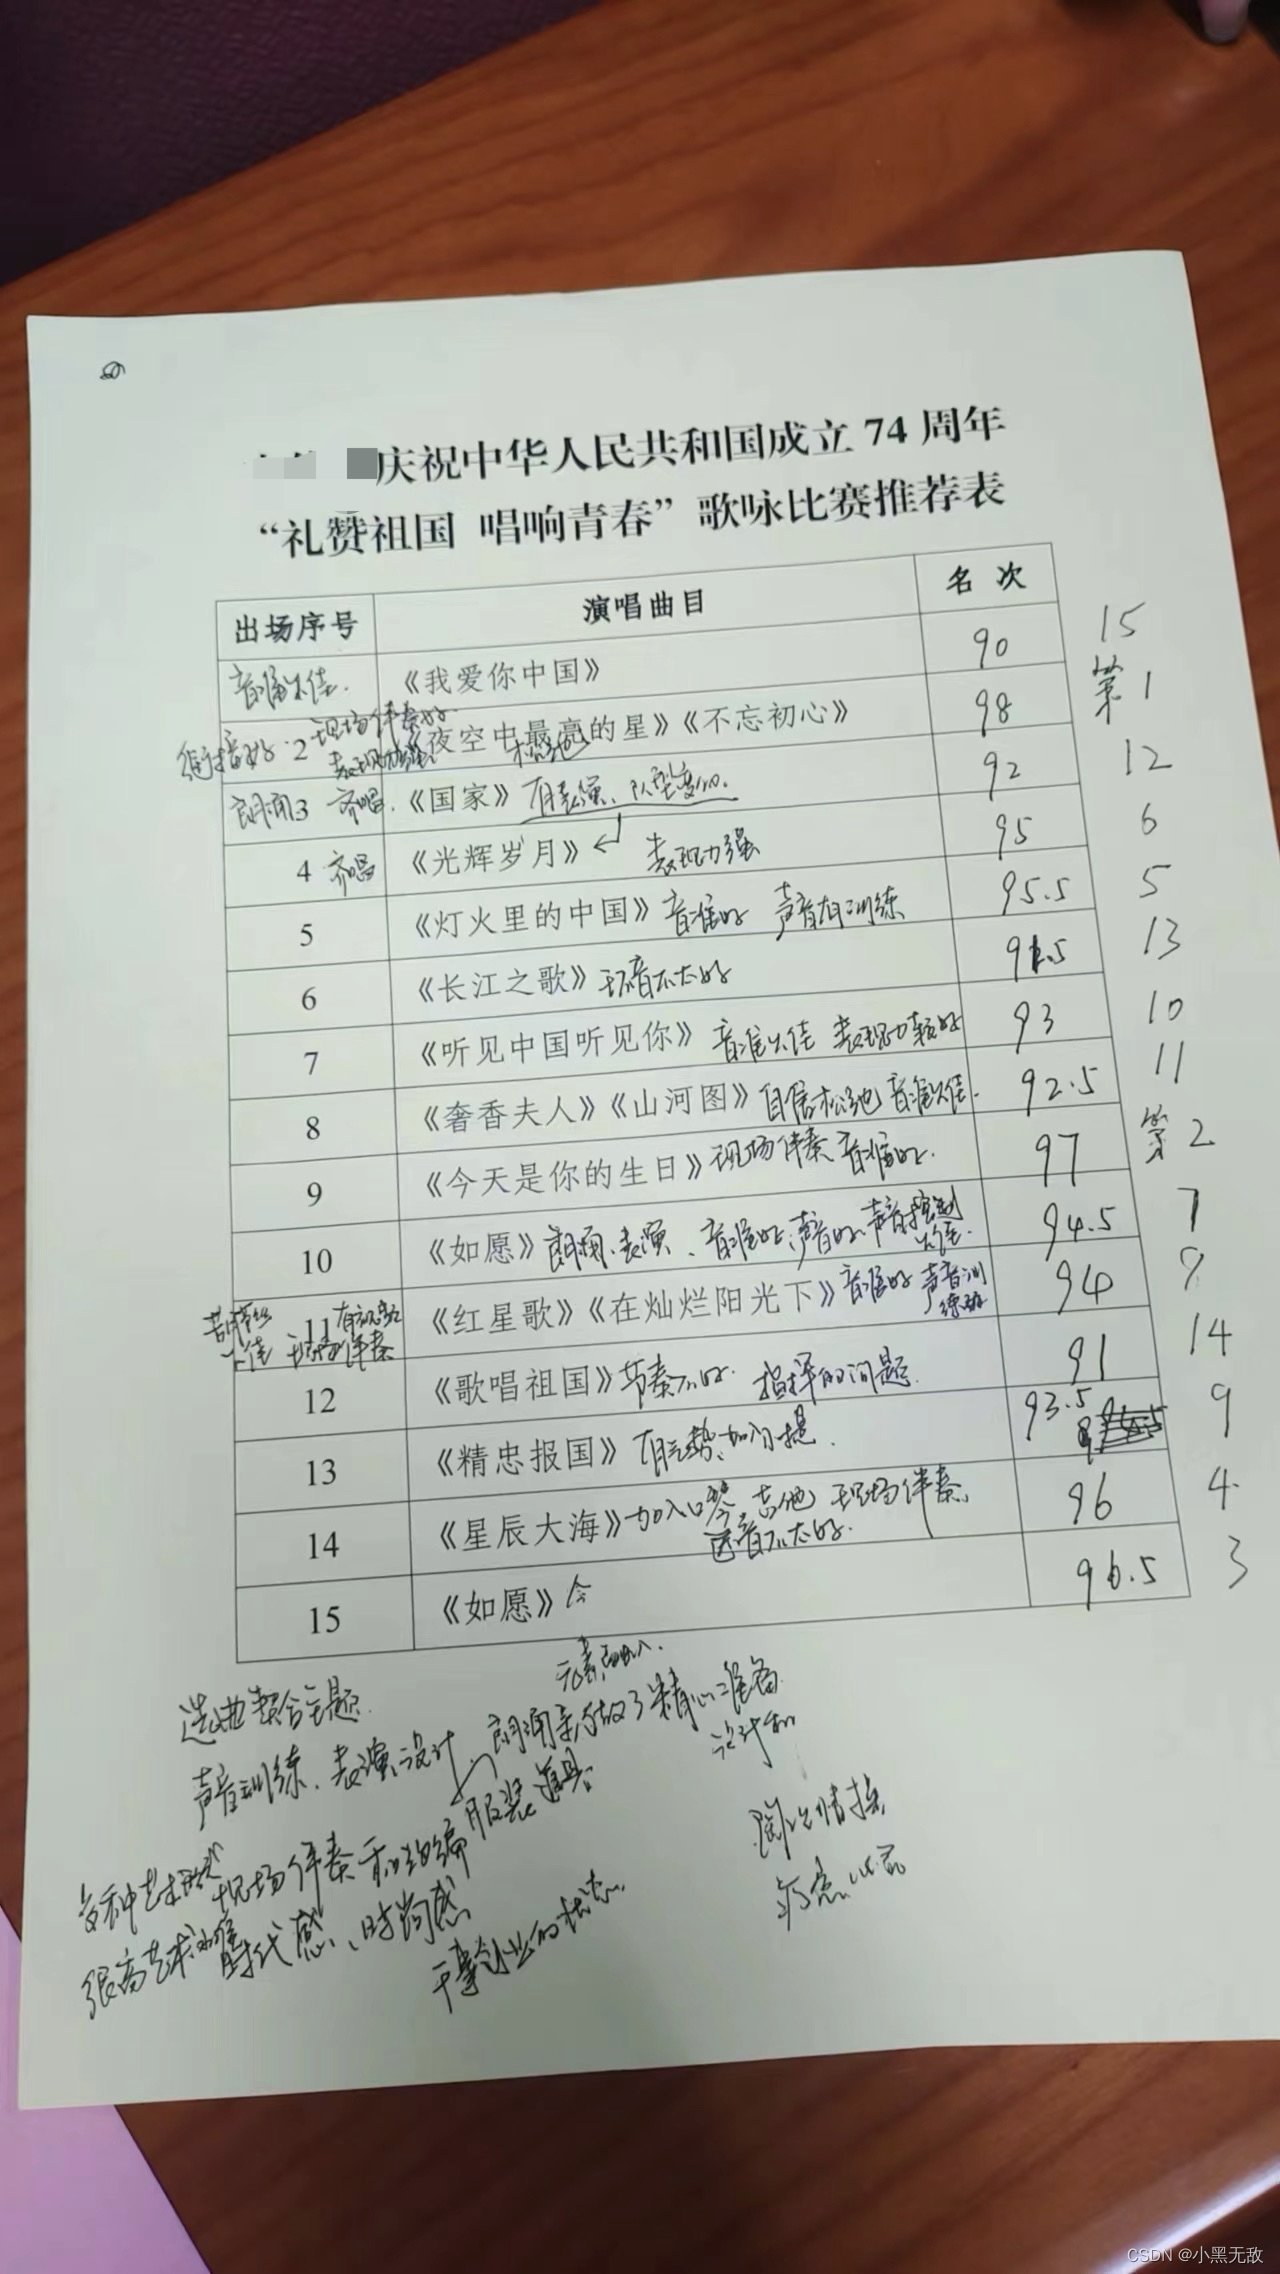 庆祝中华人民共和国成立 74 周年
“礼赞祖国 唱响青春”歌咏比赛推荐表
出场序号 演唱曲目 名次
音准欠佳. 《我爱你中国》 90 15
衔接好. 2 现场伴奏好 表现力强 《夜空中最亮的星》《不忘初心》 98 第1
朗诵 3 齐唱. 《国家》有表演、队型变化. 92 12
4 齐唱 《光辉岁月》 表现力强 95 6
5 《灯火里的中国》音准好 声音有训练 95.5 5
6 《长江之歌》 音不太好 91.5 13
7 《听见中国听见你》 音准欠佳 表现力较好 93 10
8 《奢香夫人》《山河图》自信松弛 音准欠佳. 92.5 11
9 《今天是你的生日》现场伴奏 音准好. 97 第2
10 《如愿》朗诵、表演、音准好、声音好、声音控制 94.5 7
11 现场伴奏 《红星歌》《在灿烂阳光下》音准好 声音训练 94
12 《歌唱祖国》节奏不好. 指挥的问题. 91 14
13 《精忠报国》有气势、加入 93.5 9
14 《星辰大海》加入口琴、吉他 现场伴奏, 音不太好. 96 4
15 《如愿》 96.5 3
元素加入.
选曲契合主题.
声音训练、表演设计 朗诵 做了精心准备
设计和
服装道具.
陶冶情操
多种艺术形式 现场伴奏 和改编
很高艺术水准 时代感、时尚感
干事创业的状态.
CSDN @小黑无敌